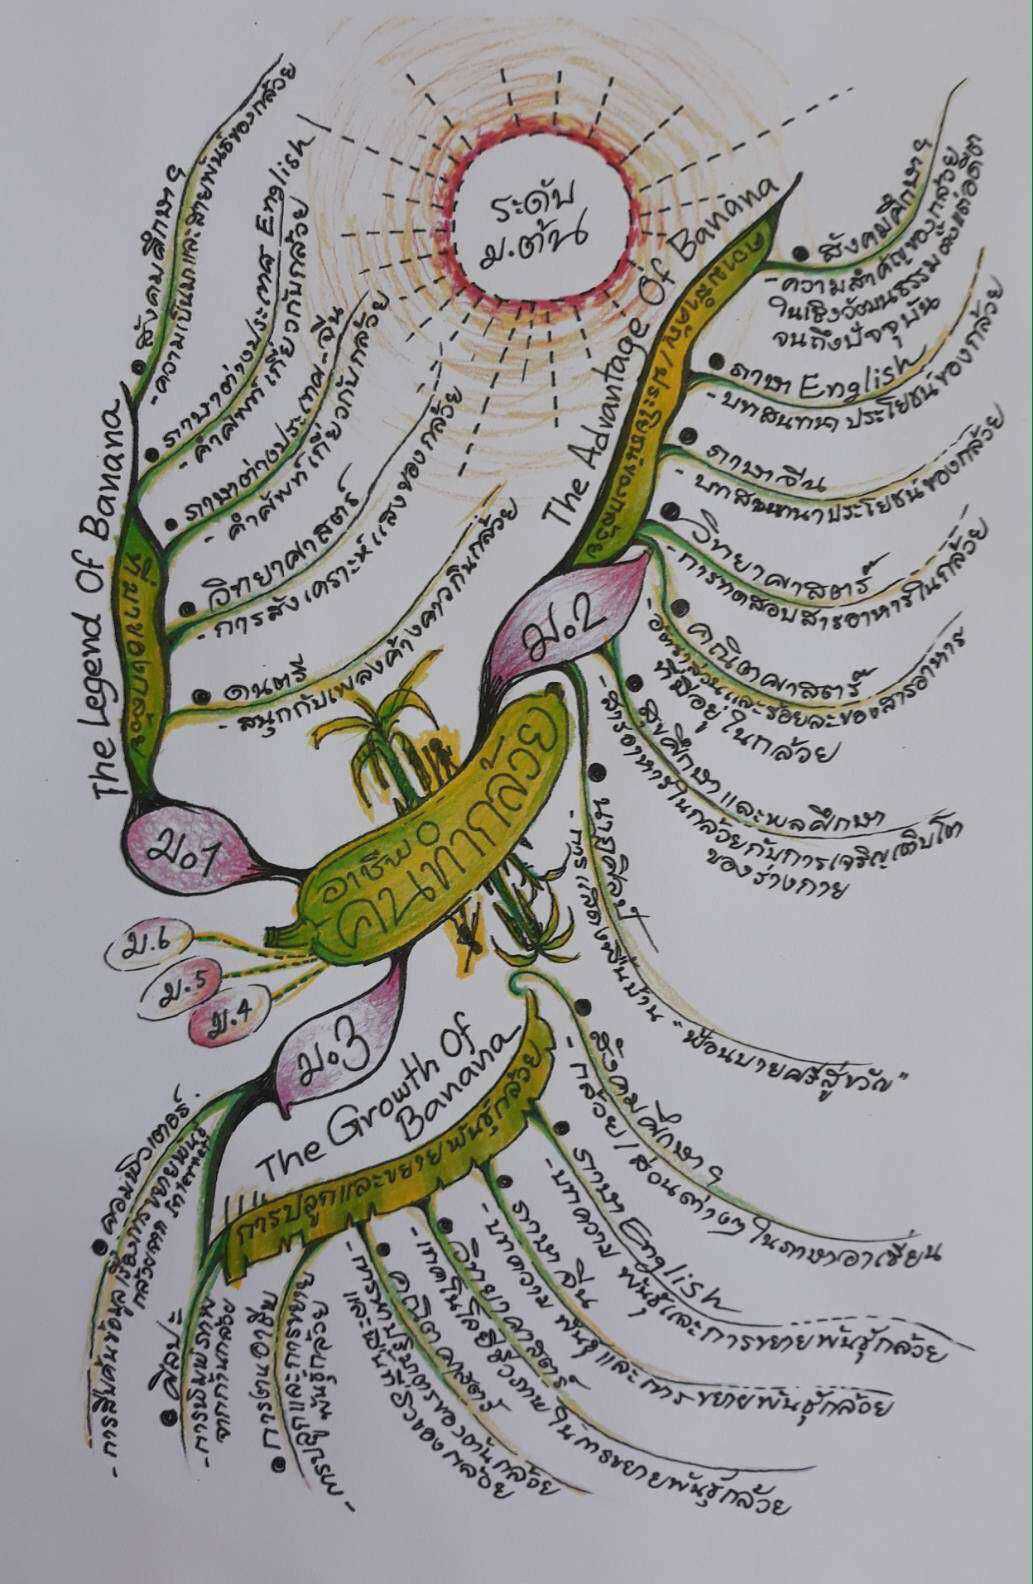 ระดับ
ม.ต้น
อาชีพ
คนทำกล้วย
ม.1
The Legend Of Banana
ที่มาของกล้วย
สังคมศึกษาฯ
- ความเป็นมาและสายพันธ์ของกล้วย
ภาษาต่างประเทศ English
- คำศัพท์เกี่ยวกับกล้วย
ภาษาต่างประเทศ-จีน
- คำศัพท์เกี่ยวกับกล้วย
วิทยาศาสตร์
- การสังเคราะห์แสงของกล้วย
ดนตรี
- สนุกกับเพลงค้างคาวกินกล้วย
ม.2
The Advantage Of Banana
ความสำคัญ/ประโยชน์ของกล้วย
สังคมศึกษาฯ
- ความสำคัญของกล้วย
ในเชิงวัฒนธรรมตั้งแต่อดีต
จนถึงปัจจุบัน
ภาษา English
- บทสนทนาประโยชน์ของกล้วย
ภาษาจีน
- บทสนทนาประโยชน์ของกล้วย
วิทยาศาสตร์
- การทดสอบสารอาหารในกล้วย
คณิตศาสตร์
- อัตราส่วนและร้อยละของสารอาหาร
ที่มีอยู่ในกล้วย
สุขศึกษาและพลศึกษา
- สารอาหารในกล้วยกับการเจริญเติบโต
ของร่างกาย
นาฏศิลป์
- การแสดงพื้นบ้าน "ฟ้อนบายศรีสู่ขวัญ"
ม.3
The Growth Of
Banana
การปลูกและขยายพันธุ์กล้วย
สังคมศึกษาฯ
- กล้วย/ส่วนต่างๆ ในภาษาอาเซียน
ภาษา English
- บทความ พันธุ์และการขยายพันธุ์กล้วย
ภาษาจีน
- บทความ พันธุ์และการขยายพันธุ์กล้วย
วิทยาศาสตร์
- เทคโนโลยีชีวภาพในการขยายพันธุ์กล้วย
คณิตศาสตร์
- การหาปริมาตรของต้นกล้วย
และพื้นที่ผิวของกล้วย
การงานอาชีพ
- การปลูกและการขยาย
พันธุ์กล้วย
ศิลปะ
- การพิมพ์ภาพ
จากก้านกล้วย
คอมพิวเตอร์
- การสืบค้นข้อมูลเรื่องการขยายพันธุ์
กล้วยจาก Internet
ม.4
ม.5
ม.6